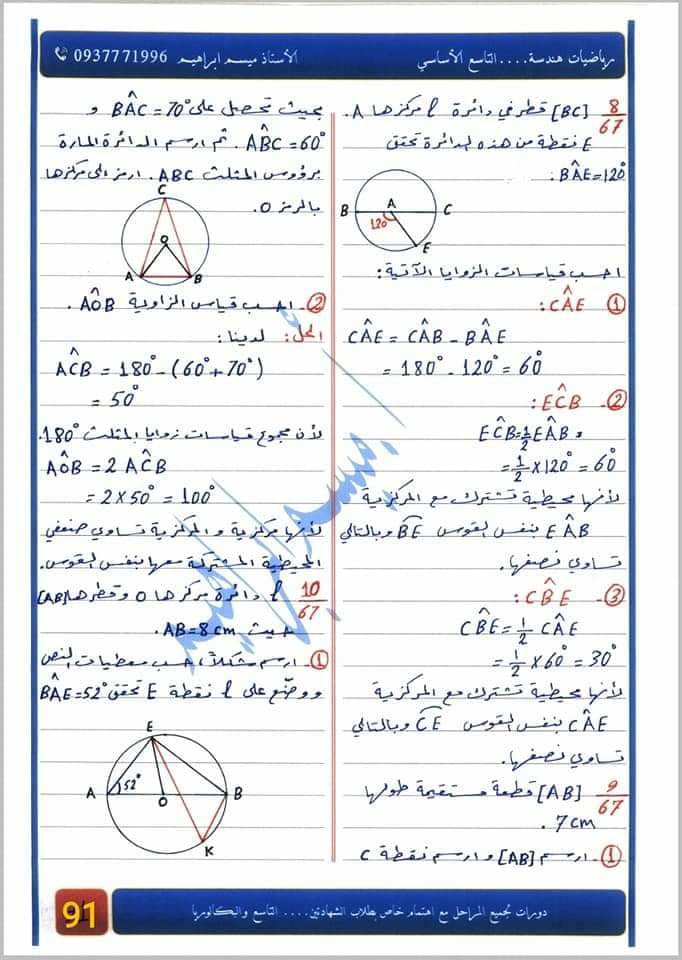 رياضيات هندسة.... التاسع الأساسي
الأستاذ ميسم ابراهيم 0937771996
8/67 [BC] قطر في دائرة C مركزها A.
E نقطة من هذه الدائرة تحقق
BÂE=120°.
A
B
C
120°
E
احسب قياسات الزوايا الآتية:
① CÂE:
CÂE = CÂB - BÂE
= 180° - 120° = 60°
② - EĈB:
EĈB = 1/2 EÂB
= 1/2 × 120° = 60°
لأنها محيطية تشترك مع المركزية
EÂB بنفس القوس BE وبالتالي
تساوي نصفها.
③ - CB̂E:
CB̂E = 1/2 CÂE
= 1/2 × 60° = 30°
لأنها محيطية تشترك مع المركزية
CÂE بنفس القوس CE وبالتالي
تساوي نصفها.
9/67 [AB] قطعة مستقيمة طولها
7 cm.
① - ارسم [AB] وارسم نقطة C
بحيث تحصل على BÂC = 70° و
AB̂C = 60°. ثم ارسم الدائرة المارة
برؤوس المثلث ABC. ارمز الى مركزها
بالرمز O.
C
O
A
B
② - احسب قياس الزاوية AÔB.
الحل: لدينا:
AĈB = 180° - (60° + 70°)
= 50°
لأن مجموع قياسات زوايا المثلث 180°.
AÔB = 2 AĈB
= 2 × 50° = 100°
لأنها مركزية و المركزية تساوي ضعفي
المحيطية المشتركة معها بنفس القوس.
10/67 C دائرة مركزها O وقطرها [AB]
حيث AB = 8 cm.
① - ارسم شكلاً، حسب معطيات النص
ووضّع على C نقطة E تحقق BÂE = 52°
E
A
52°
O
B
K
دورات لجميع المراحل مع اهتمام خاص بطلاب الشهادتين.... التاسع والبكالوريا
91